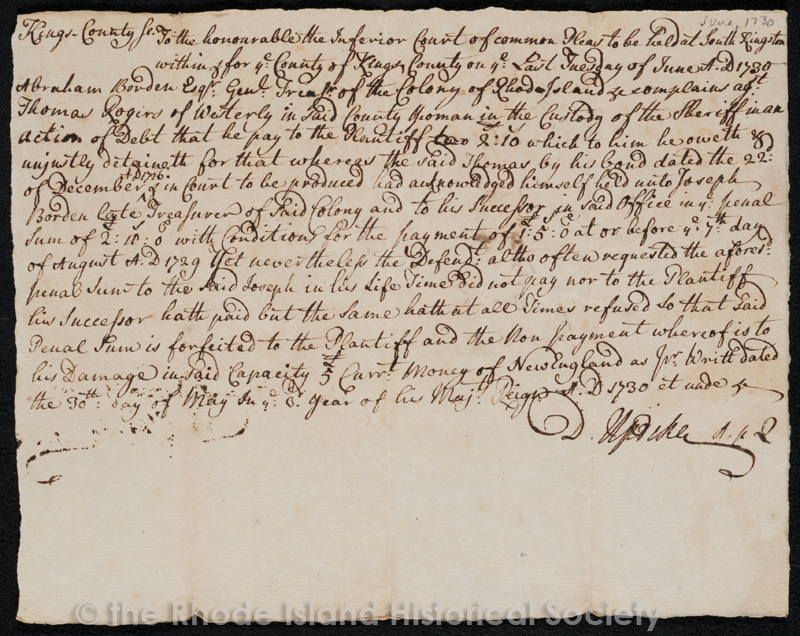 June, 1730
Kings-County Sc. To the honourable the Inferior Court of common Pleas to be held at South Kingston
within & for ye. County of Kings County on ye. Last Tuesday of June A.D 1730
Abraham Borden Esqr. Genl. Treasr. of the Colony of Rhode Island &c complains agt.
Thomas Rogers of Westerly in Said County Yeoman in the Custody of the Sheriff in an
action of Debt that he pay to the Plantiff 2:10 which to him he oweth &
unjustly detaineth for that whereas the said Thomas by his bond dated the 22:
A.D 1726.
of December & in Court to be produced had acknowledged himself held unto Joseph
Borden late Treasurer of Said Colony and to his Successor in said Office in ye. penal
Sum of 2:10:0 with Condition for the payment of 1:5:0 at or before ye. 7th day
of August A.D 1729 Yet nevertheless the Defendt. altho often requested the aforesd.
penal Sum to the said Joseph in his Life Time did not pay nor to the Plantiff
his Successor hath paid but the same hath at all Times refused So that Said
Penal Sum is forfeited to the Plantiff and the Non payment whereof is to
his Damage in Said Capacity £5 Currt. Money of New England as pr. Writt dated
the 30th day of May In ye. 3d. Year of his Maj. Reign A.D 1730 et unde &c
D. Updike
© the Rhode Island Historical Society